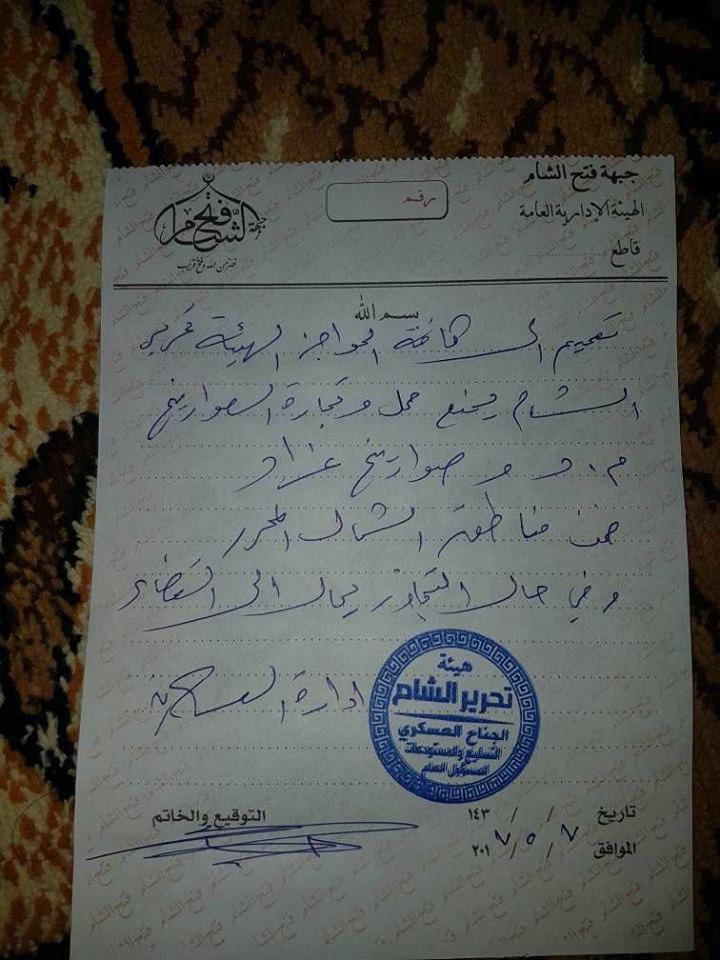 جبهة فتح الشام
الهيئة الإدارية العامة
قاطع ..............
رقم
جبهة فتح الشام
نصر من الله وفتح قريب
بسم الله
تعميم الى كافة الحواجز الهيئة تحرير
الشام يمنع حمل وتجارة الصواريخ
م.د و صواريخ غراد
ضمن مناطق الشمال المحرر
وفي حال التجاوز يحال الى القضاء
ادارة
هيئة
تحرير الشام
الجناح العسكري
التسليح والمستودعات
المسؤول العام
تاريخ / / ١٤٣
الموافق ٧ / ٥ / ٢٠١٧
التوقيع والخاتم